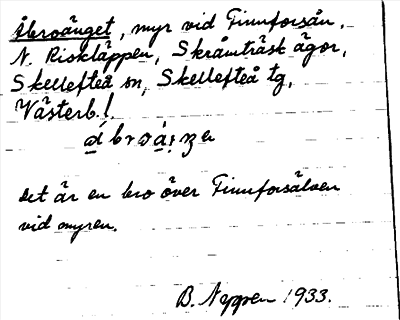 Åbroänget, myr vid Finnforsån,
N. Riskläppen, Skråmträsk ägor,
Skellefteå sn, Skellefteå tg,
Västerb. l.
det är en bro över Finnforsälven
vid myren.
B. Nygren 1933.